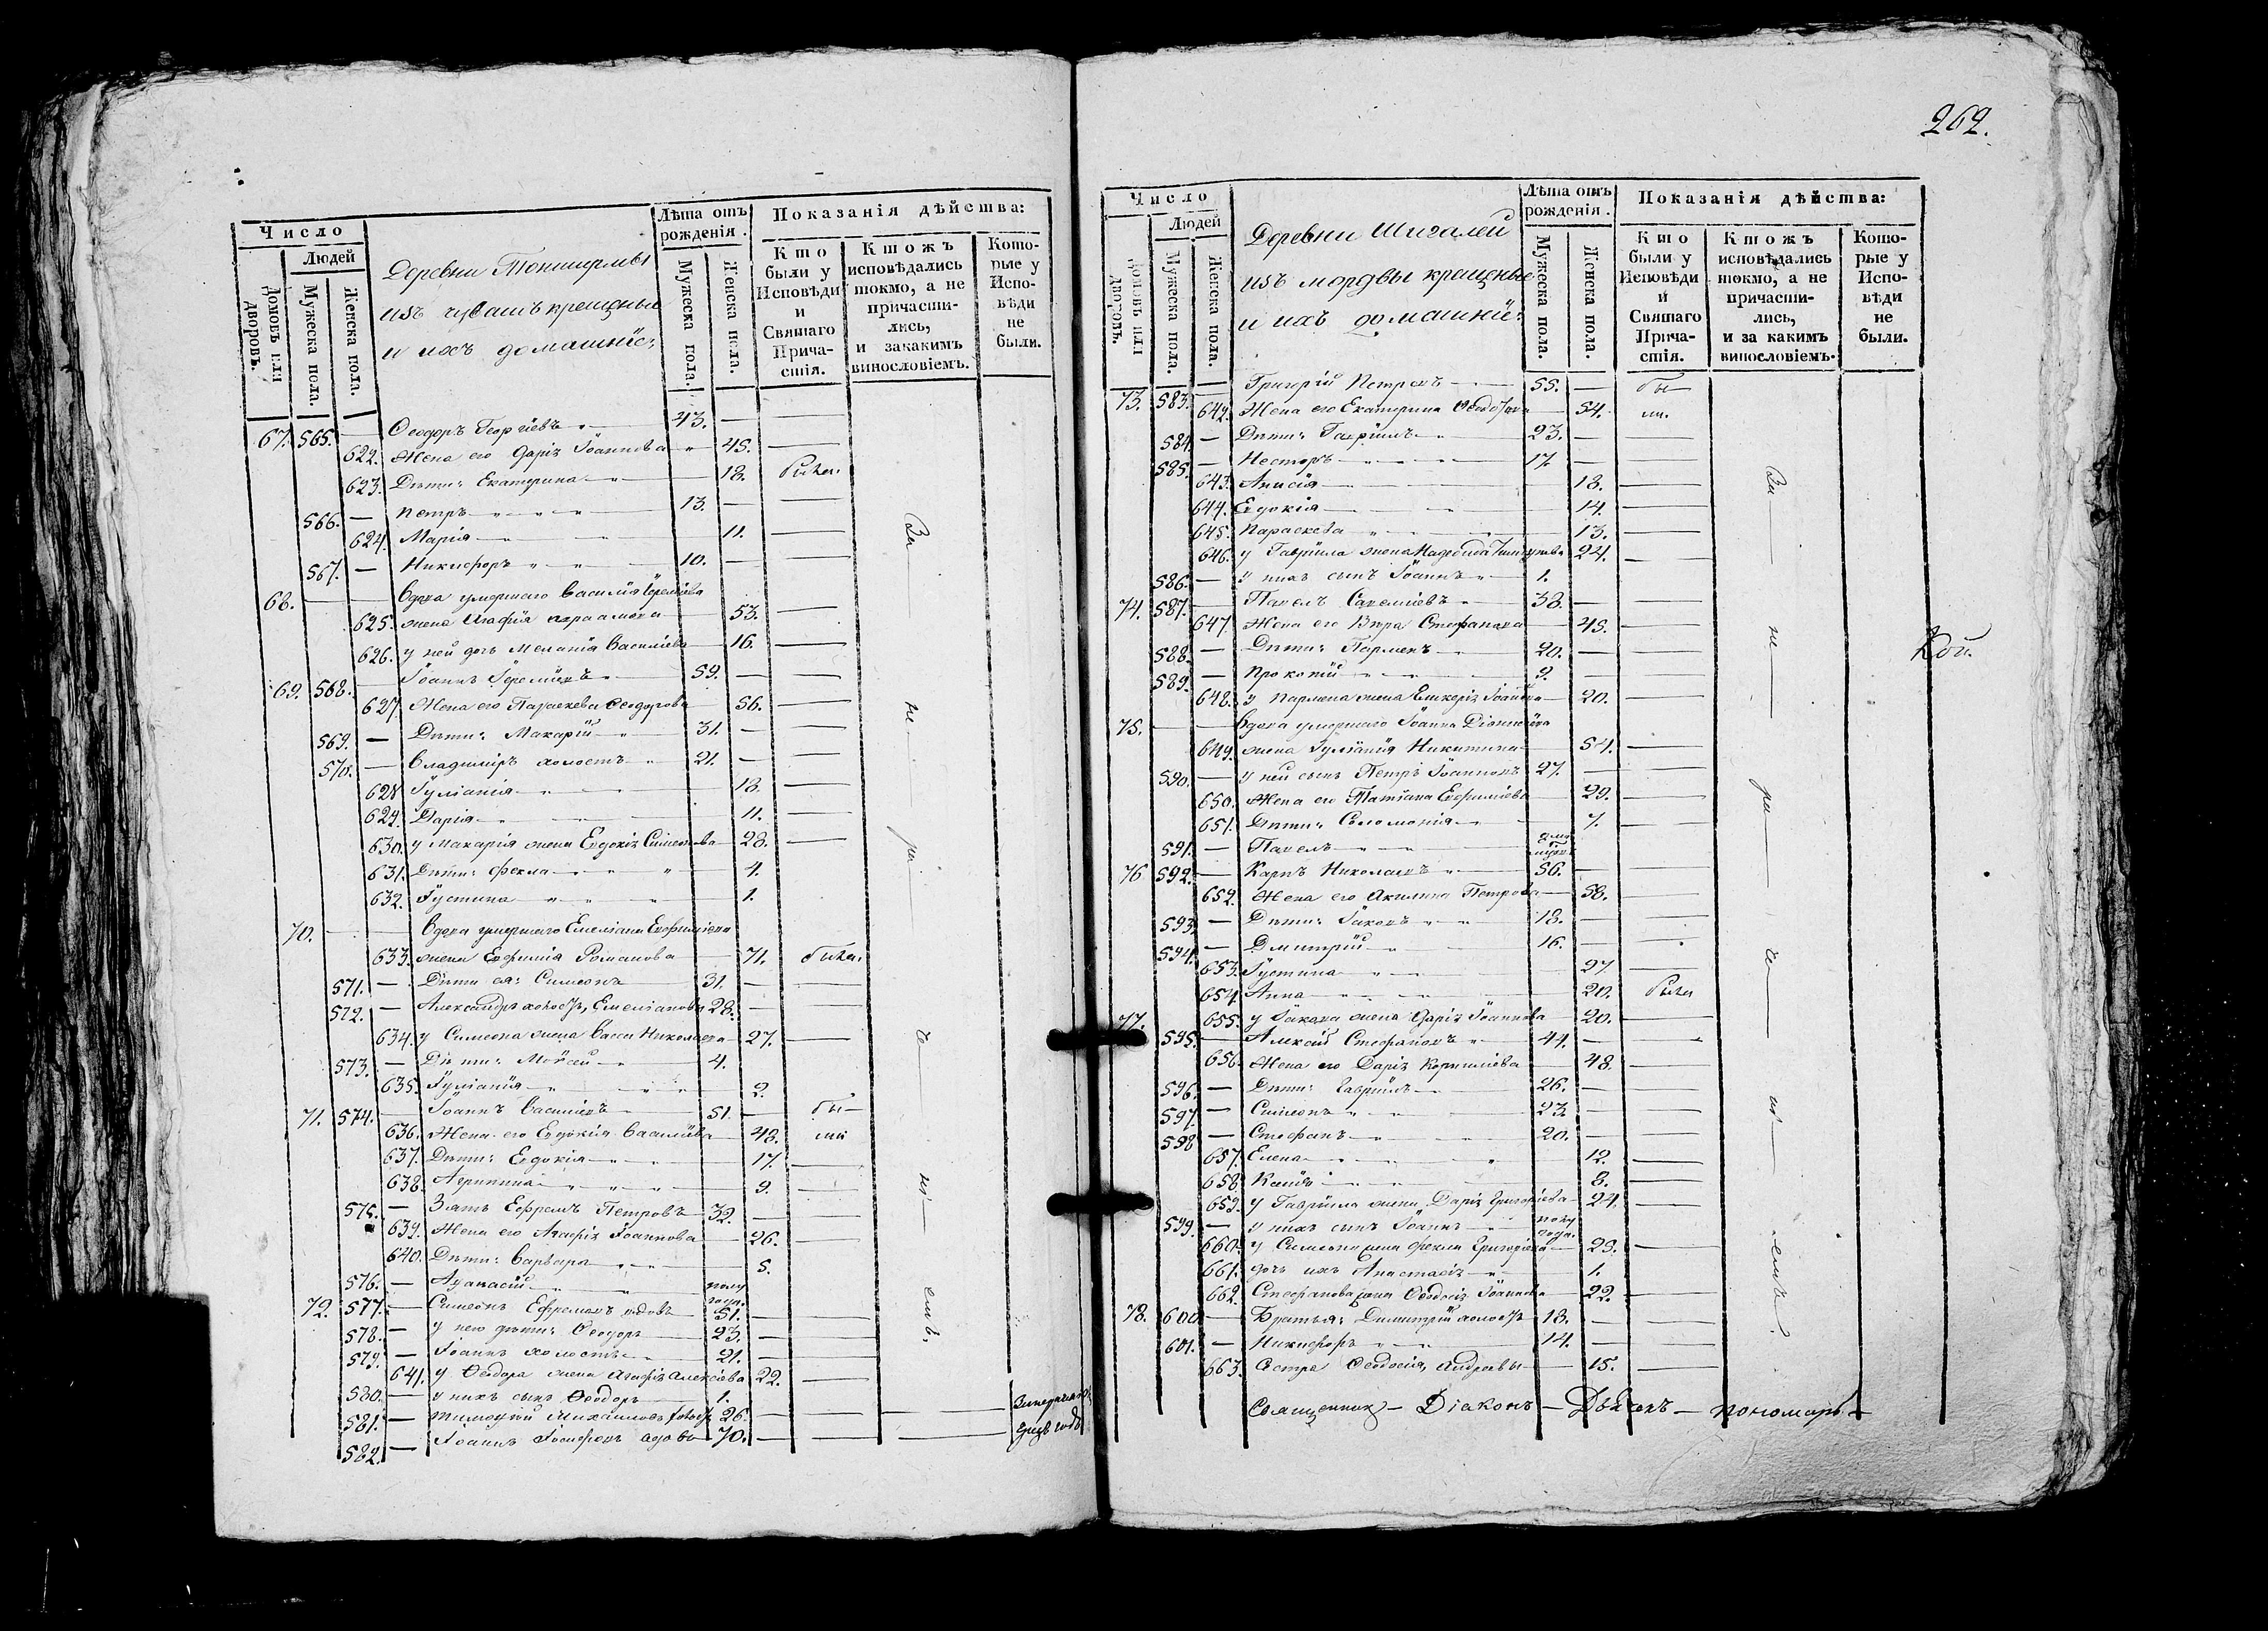 262.
Число
Людей
Домовъ или дворовъ.
Мужеска пола.
Женска пола.
Деревни
изъ чувашъ крещеные
и ихъ домашніе:
Лѣта отъ рожденія.
Мужеска пола.
Женска пола.
Показанія дѣйства:
Кто были у Исповѣди и Святаго Причастія.
Ктожъ исповѣдались токмо, а не причастились, и закакимъ винословіемъ.
Которые у Исповѣди не были.
67. 565. — Ѳеодоръ Георгіевъ 43. —
622. Жена его Даріа Іоаннова 45. —
623. Дѣти: Екатерина 18. была
566. — Петръ 13. —
624. Марія 11. —
567. — Никифоръ 10. —
68. — Вдова умершаго Василія
625. жена Агафія 53. —
626. у ней дочь Меланія Василіева 16. —
69. 568. — Іоаннъ 59. —
627. Жена его Параскева Ѳеодорова 56. —
569. — Дѣти: Макарій 31. —
570. — Владиміръ холостъ 21. —
628. Іуліанія 18. —
629. Дарія 11. —
630. у Макарія жена Евдокіа Симеонова 28. —
631. Дѣти: Фекла 4.
632. Іустина 1.
70. — Вдова умершаго Емеліана
633. жена Евфимія Романова 71. была.
571. — Дѣти ея: Симеонъ 31. —
572. — Александръ холостъ, Емеліановы 28. —
634. у Симеона жена Васса Николаева 27. —
573. — Дѣти: Моѵсей 4.
635. Іуліанія 2.
71. 574. — Іоаннъ Василіевъ 51. — бы
636. Жена его Евдокія Василіева 48. ли
637. Дѣти: Евдокія 17. —
638. Агрипина 9. —
575. — Зять Ефремъ Петровъ 32. —
639. Жена его Агафіа Іоаннова 26. —
640. Дѣти: Варвара 5.
576. — Аѳанасій полу года.
72. 577. — Симеонъ Ефремовъ вдовъ 51. —
578. — у него дѣти: Ѳеодоръ 23. —
579. — Іоаннъ холостъ 21. —
641. у Ѳеодора жена Агафіа Алексіева 22. —
580. — у нихъ сынъ Ѳеодоръ 1.
581. — Тимоѳей Михаиловъ холостъ 26. —
582. — Іоаннъ Іосифовъ вдовъ 70. —
За не ра че ні емъ.
Число
Людей
Домовъ или дворовъ.
Мужеска пола.
Женска пола.
Деревни Шигалей
изъ мордвы крещеные
и ихъ домашніе:
Лѣта отъ рожденія.
Мужеска пола.
Женска пола.
Показанія дѣйства:
Кто были у Исповѣди и Святаго Причастія.
Ктожъ исповѣдались токмо, а не причастились, и за какимъ винословіемъ.
Которые у Исповѣди не были.
73. 583. — Григорій Петровъ 55. — бы
642. Жена его Екатерина 54. ли.
584. — Дѣти: Гавріилъ 23. —
585. — Несторъ 17. —
643. Анисія 18. —
644. Евдокія 14. —
645. Параскева 13. —
646. у Гавріила жена Надежда 24. —
586. — у нихъ сынъ Іоаннъ 1.
74. 587. — Павелъ Савеліевъ 38. —
647. Жена его Вѣра Стефанова 45. —
588. — Дѣти: Парменъ 20. —
589. — Прокопій 9. —
648. у Пармена жена 20. —
75. — Вдова умершаго Іоанна
649. жена Іуліанія Никитина 54. —
590. — у ней сынъ Петръ Іоанновъ 27. —
650. Жена его Татіана Евфиміева 29. —
651. Дѣти: Соломонія 7. —
591. — Павелъ
76. 592. — Карпъ Николаевъ 56. —
652. Жена его Акилина Петрова 58. —
593. — Дѣти: Іаковъ 18. —
594. — Дмитрій 16. —
653. Іустина 27. —
654. Анна 20. была
655. у Іакова жена Даріа Іоаннова 20. —
77. 595. — Алексій Стефановъ 44. —
656. Жена его Даріа Корниліева 48. —
596. — Дѣти: Гавріилъ 26. —
597. — Симеонъ 23. —
598. — Стефанъ 20. —
657. Елена 12. —
658. 8. —
659. у Гавріила жена Даріа Григоріева 24. —
599. — у нихъ сынъ Іоаннъ полу года.
660. у Симеона жена Фекла Григоріева 23. —
661. дочь ихъ Анастасіа 1.
662. Стефанова жена Ѳеодосіа Іоаннова 22. —
78. 600. — Братья: Димитрій холостъ 18. —
601. — Никифоръ 14. —
663. Сестра Ѳеодосія, 15. —
За не ра че ні емъ.
Священникъ — Діаконъ — Дьячокъ — пономарь —